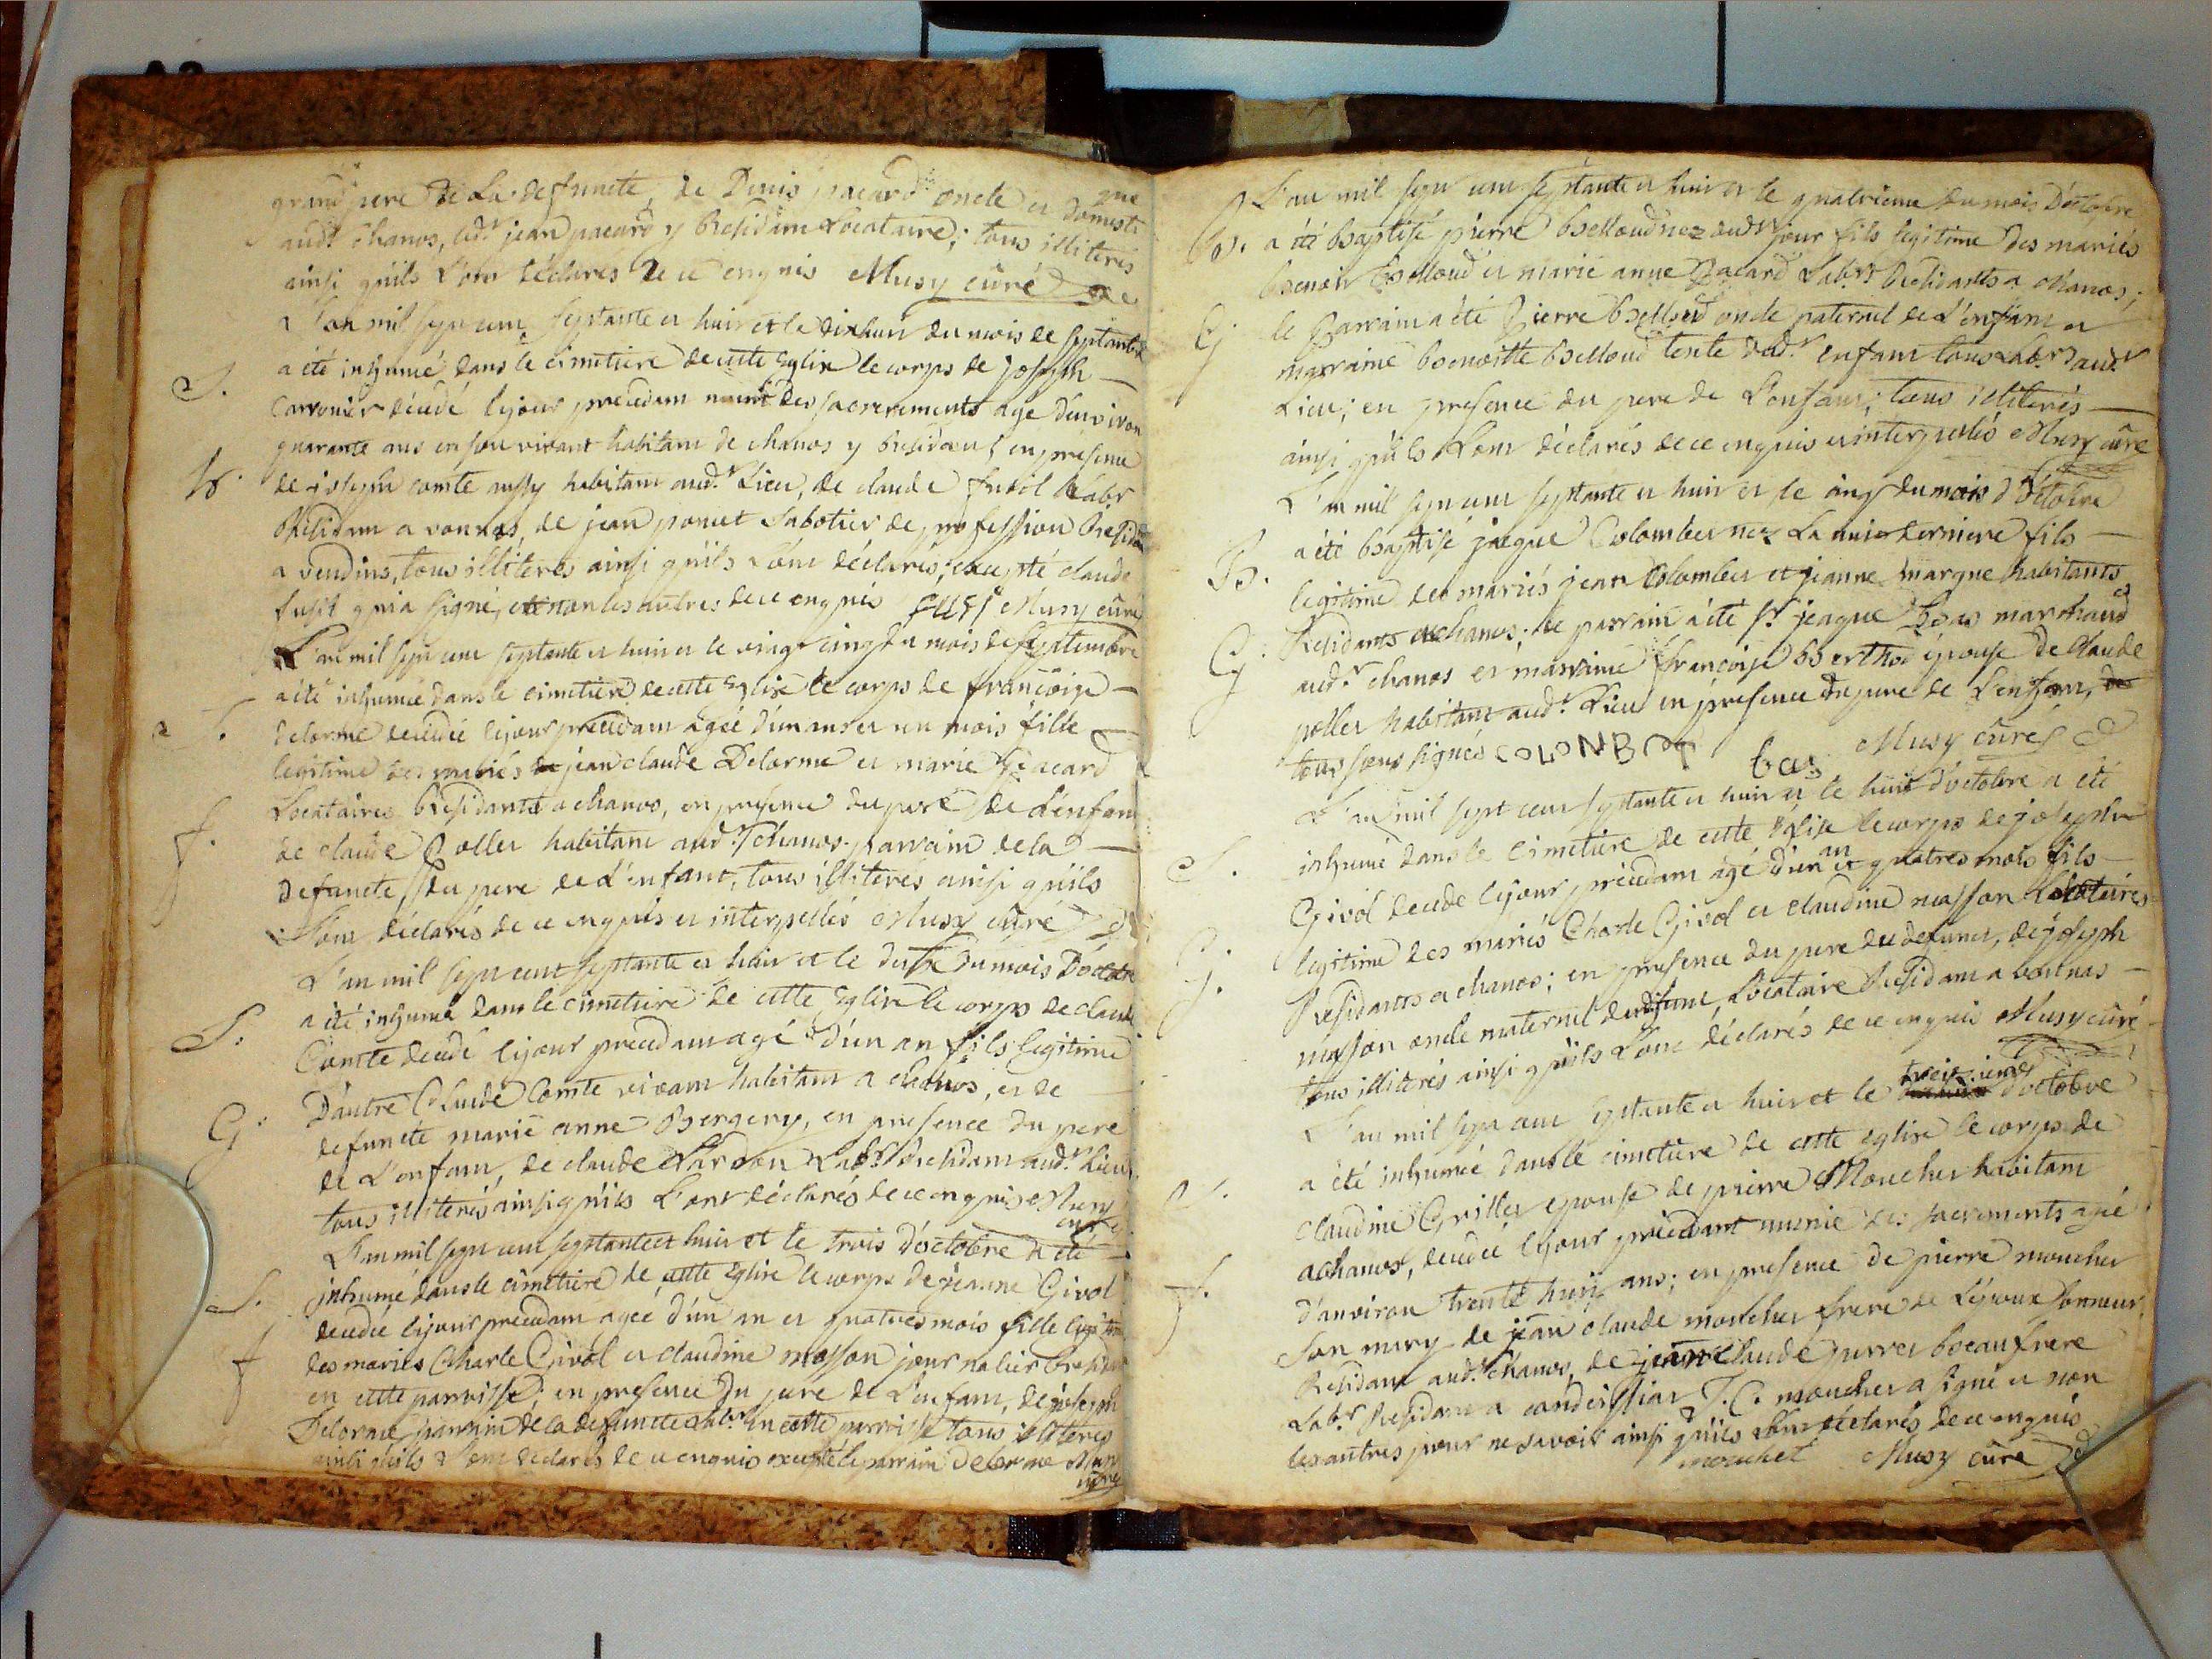 grand pere de La defuncte, de Denis pacard oncle et domesti
que
aud.t chanos, led.t jean pacard y Residam Locataire; tous illiteres
ainsi quils L'ont déclarés de ce enquis Musy curé
L'an mil sept cent septante et huit et le dixhuit du mois de septembre
S. a été inhumé dans le cimetiere de cette Eglise le corps de joseph
Carronier décédé le jour précédam muni des sacrements agé d'environ
quarante ans en son vivant habitam de chanos y Residant, en presence
h. de joseph comte aussy habitam aud.t Lieu, de claude fusil Lab.r
Residam a vonnas, de jean poncet Sabotier de profession Residam
a vendins, tous illiteres ainsi quils L'ont déclarés, excepté claude
fusil qui a signé, et non les autres de ce enquis FUSI Musy curé
L'an mil sept cent septante et huit et le vingt cinq du mois de septembre
a été inhumée dans le cimetiere de cette Eglise le corps de françoise
S. delorme décédée le jour précédam agée d'un an et un mois fille
legitime des mariés jean claude Delorme et marie Pacard
Locataires Residants a chanos, en presence du pere de L'enfam
f. de claude Pollet habitam aud.t chanos parrain de la
defuncte, du pere de L'enfant, tous illiteres ainsi quils
L'ont déclarés de ce enquis et interpellés Musy curé
L'an mil sept cent septante et huit et le du mois D'octobre
S. a été inhumé dans le cimetiere de cette Eglise le corps de claude
Comte décédé le jour précédam agé d'un an fils legitime
G. D'autre Claude Comte vivam habitam a chanos, et de
defuncte marie anne Bergery, en presence du pere
de L'enfam, de claude Lardon Lab.r Residam aud.t Lieu,
tous illiterés ainsi quils L'ont déclarés de ce enquis Musy
curé
L'an mil sept cent septante et huit et le trois d'octobre a été
S. inhumé dans le cimetiere de cette Eglise le corps de jeanne Givol
décédée le jour précédam agée d'un an et quatres mois fille legitime
f des mariés Charle Givol et claudine masson journalier Residam
en cette parroisse, en presence du pere de L'enfam, de joseph
Delorme parrain de la defuncte Lab.r en cette parroisse tous illiteres
ainsi quils L'ont declarés de ce enquis excepté le parrain delorme Musy
curé
L'an mil sept cent septante et huit et le quatrieme du mois D'octobre
B. a été baptisé pierre belloud nez dud.t jour fils legitime des mariés
benoit belloud et marie anne Pacard Lab.rs Residants a chanos;
G le Parrain a été Pierre belloud oncle paternel de L'enfam et
marraine benoitte belloud tente dud.t enfam tous Lab.rs aud.t
Lieu; en presence du pere de L'enfam; tous illiterés
ainsi quils L'ont déclarés de ce enquis et interpellés Musy curé
L'an mil sept cent septante et huit et le cinq du mois d'octobre
B. a été baptisé jaque Colombet nez La nuit derniere fils
legitime des mariés jean Colombet et jeanne marque habitants et
G Residants a chanos; le parrain a été s.r jeaque bas marchand
aud.t chanos et marraine françoise berthod épouse de Claude
pollet habitam aud.t Lieu en presence du pere de L'enfam,
tous sous signés COLONBET bas Musy curé
L'an mil sept cent septante et huit et le huit d'octobre a été
S. inhumé dans le cimetiere de cette Eglise le corps de joseph
Givol décédé le jour précédam agé d'un an et quatres mois fils
legitime des mariés Charle Givol et claudine masson Locataires
G. Residants a chanos; en presence du pere du defunct, de joseph
masson oncle maternel du defunt, Locataire Residam a vonnas
tous illiterés ainsi quils L'ont déclarés de ce enquis Musy curé
L'an mil sept cent septante et huit et le treizieme d'octobre
S. a été inhumée dans le cimetiere de cette Eglise le corps de
claudine Grillet epouse de pierre Mouchet habitam
a chanos, décédée le jour précédant munie des sacrements agée
f. d'anviron trente huit ans; en presence de pierre mouchet
son mary de jean claude mouchet frere de L'époux
Residant aud.t chanos, de jean claude perret beaufrere
Lab.r Residam a condeissiat J.C. mouchet a signé et non
les autres pour ne savoir ainsi quils L'ont déclarés de ce enquis
mouchet Musy curé